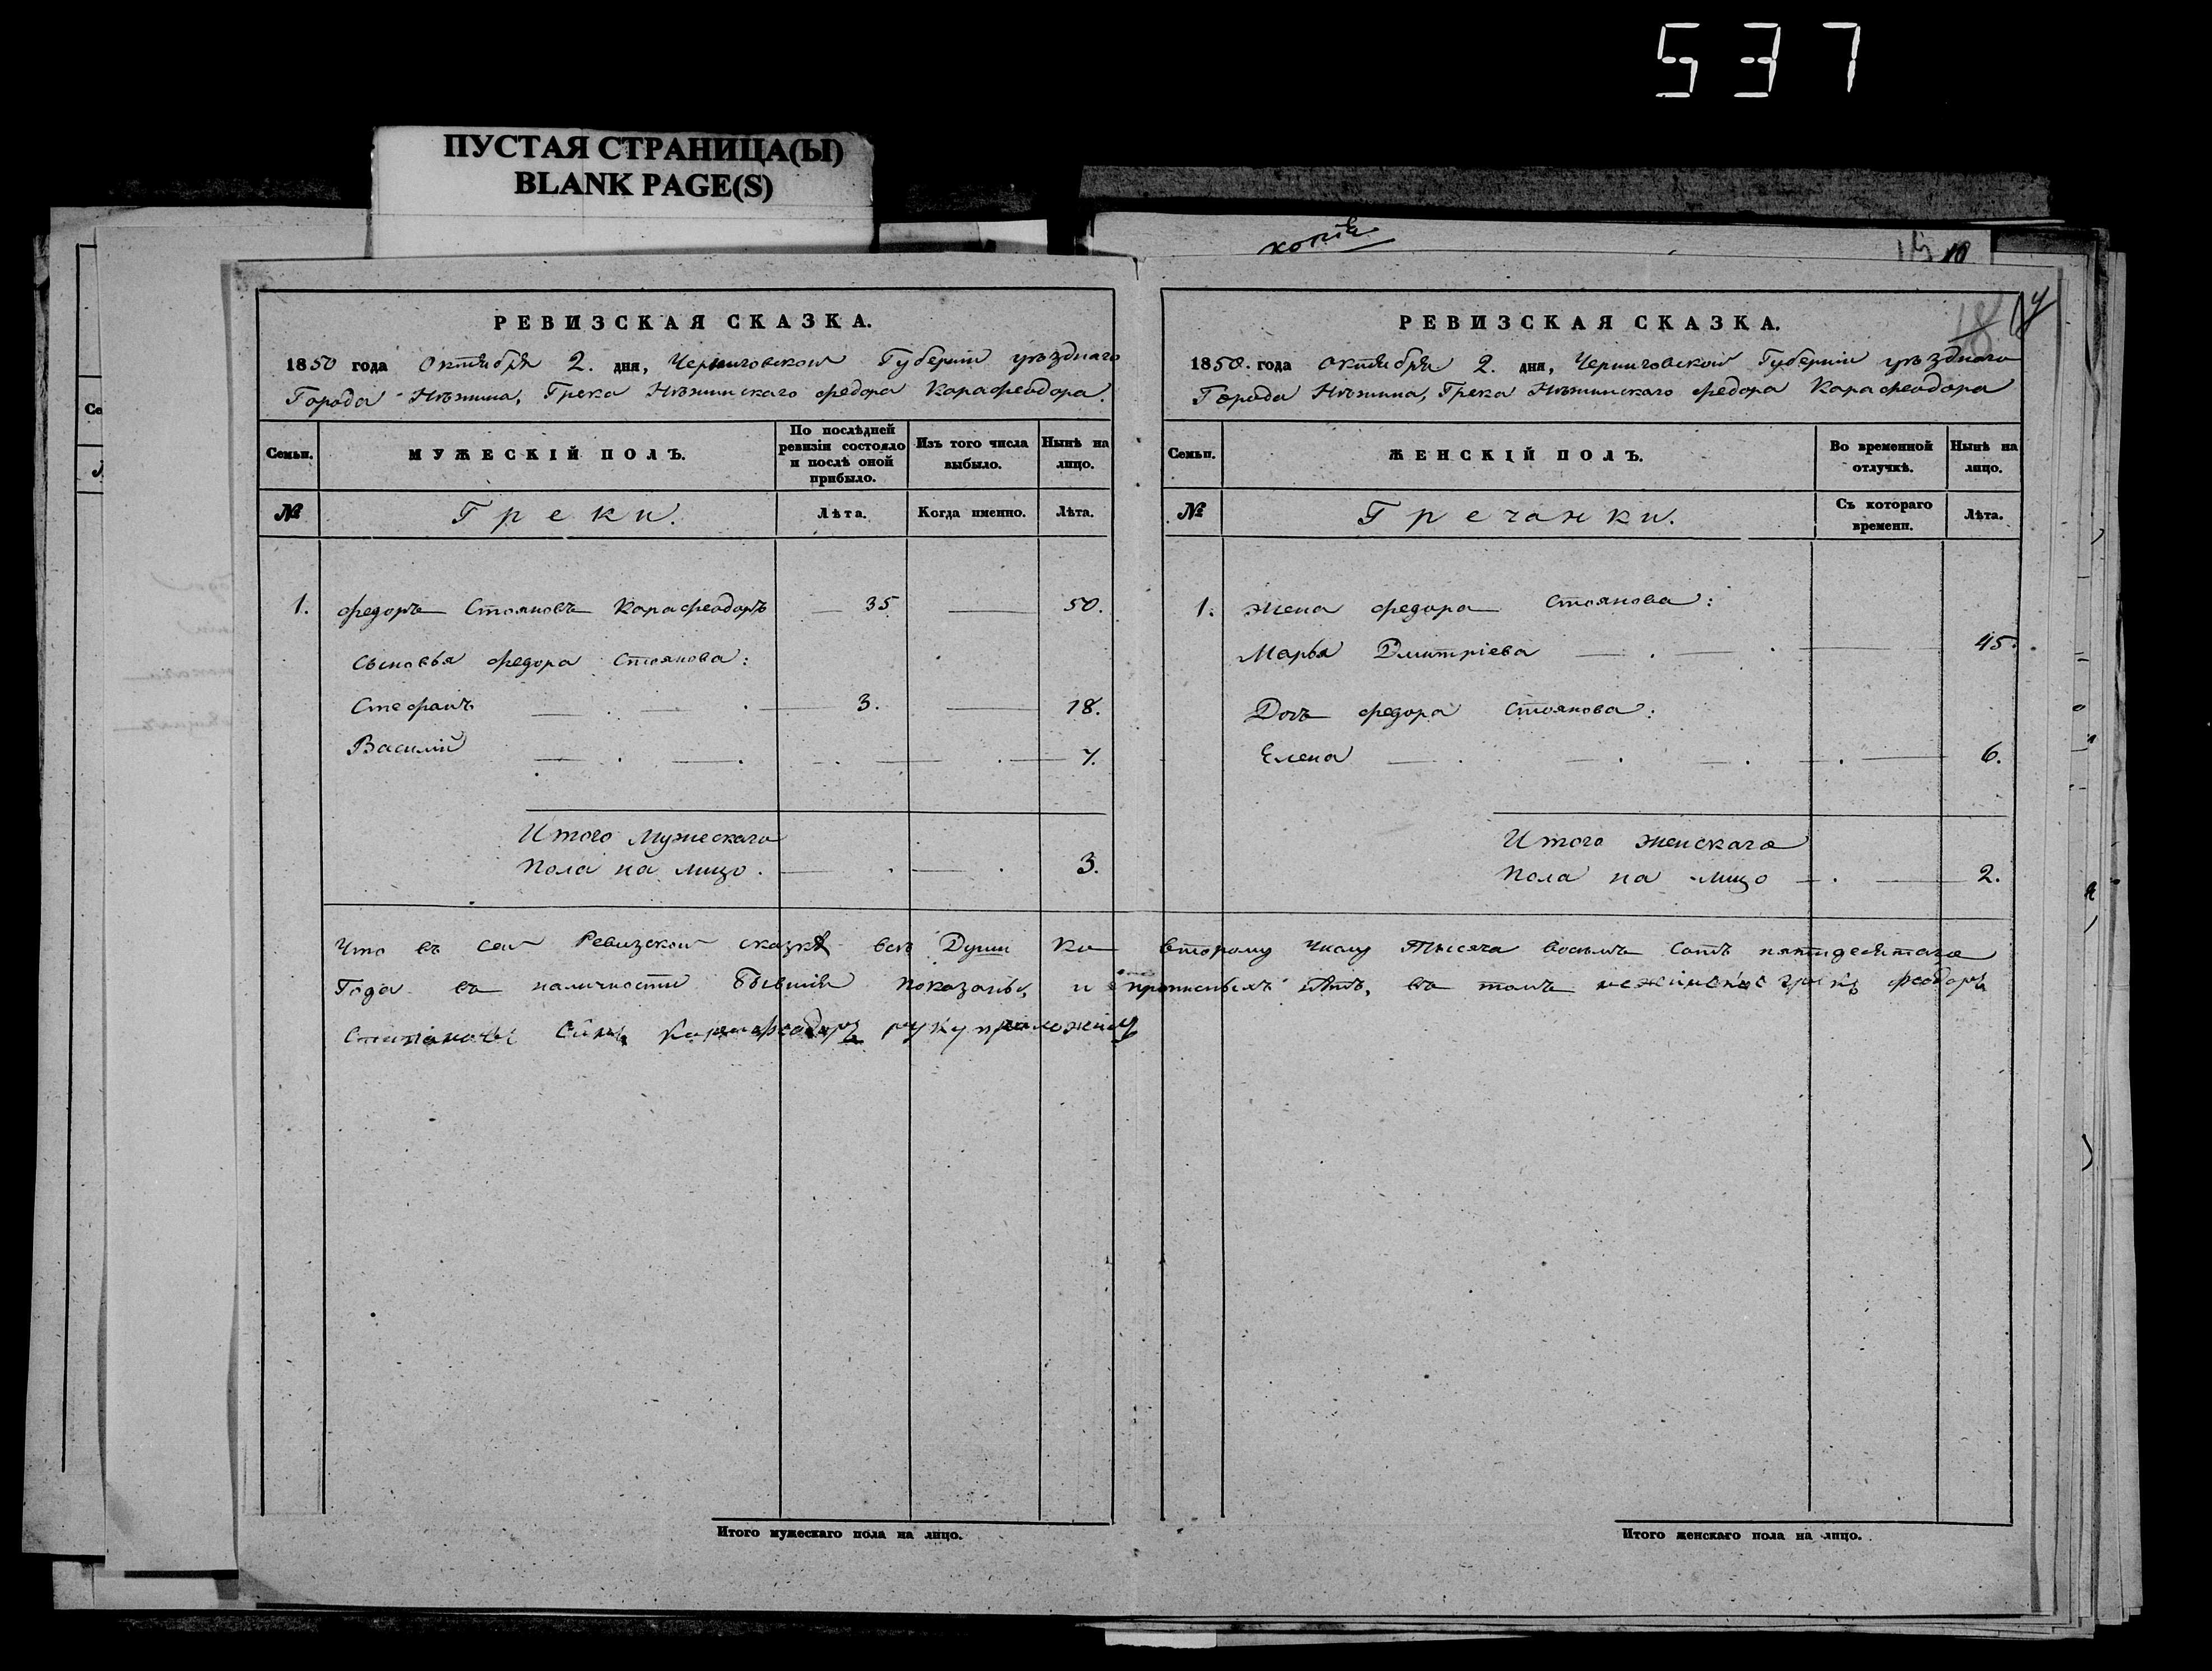 537
ПУСТАЯ СТРАНИЦА(Ы)
BLANK PAGE(S)
копія
РЕВИЗСКАЯ СКАЗКА.
1850 года Октября 2. дня, Черниговской Губернии уѣзднаго
Города Нѣжина, Грека Нѣжинскаго Федора Карафеодора.
Семьи.
МУЖЕСКІЙ ПОЛЪ.
По послѣдней ревизіи состояло и послѣ оной прибыло.
Изъ того числа выбыло.
Нынѣ на лицо.
№
Греки.
Лѣта.
Когда именно.
Лѣта.
1. Федоръ Стояновъ Карафеодоръ 35 50.
Сыновья Федора Стоянова:
Стефанъ 3. 18.
Василій 7.
Итого Мужескаго
Пола на лицо. 3.
РЕВИЗСКАЯ СКАЗКА.
1850. года Октября 2. дня, Черниговской Губерніи уѣзднаго
Города Нѣжина, Грека Нѣжинскаго Федора Карафеодора
Семьи.
ЖЕНСКІЙ ПОЛЪ.
Во временной отлучкѣ.
Нынѣ на лицо.
№
Гречанки.
Съ котораго времени.
Лѣта.
1. Жена Федора Стоянова:
Марья Дмитріева 45.
Дочь Федора Стоянова:
Елена 6.
Итого Женскаго
Пола на лицо 2.
Что въ сей Ревизской сказкѣ всѣ Души ко второму числу Тысяча восемь сотъ пятидесятаго
Года въ наличности бывшія показаны, и прописныхъ нѣтъ, въ томъ нежинскій грекъ Феодоръ
Сынъ Карафеодоръ руку приложилъ
Итого мужескаго пола на лицо.
Итого женскаго пола на лицо.